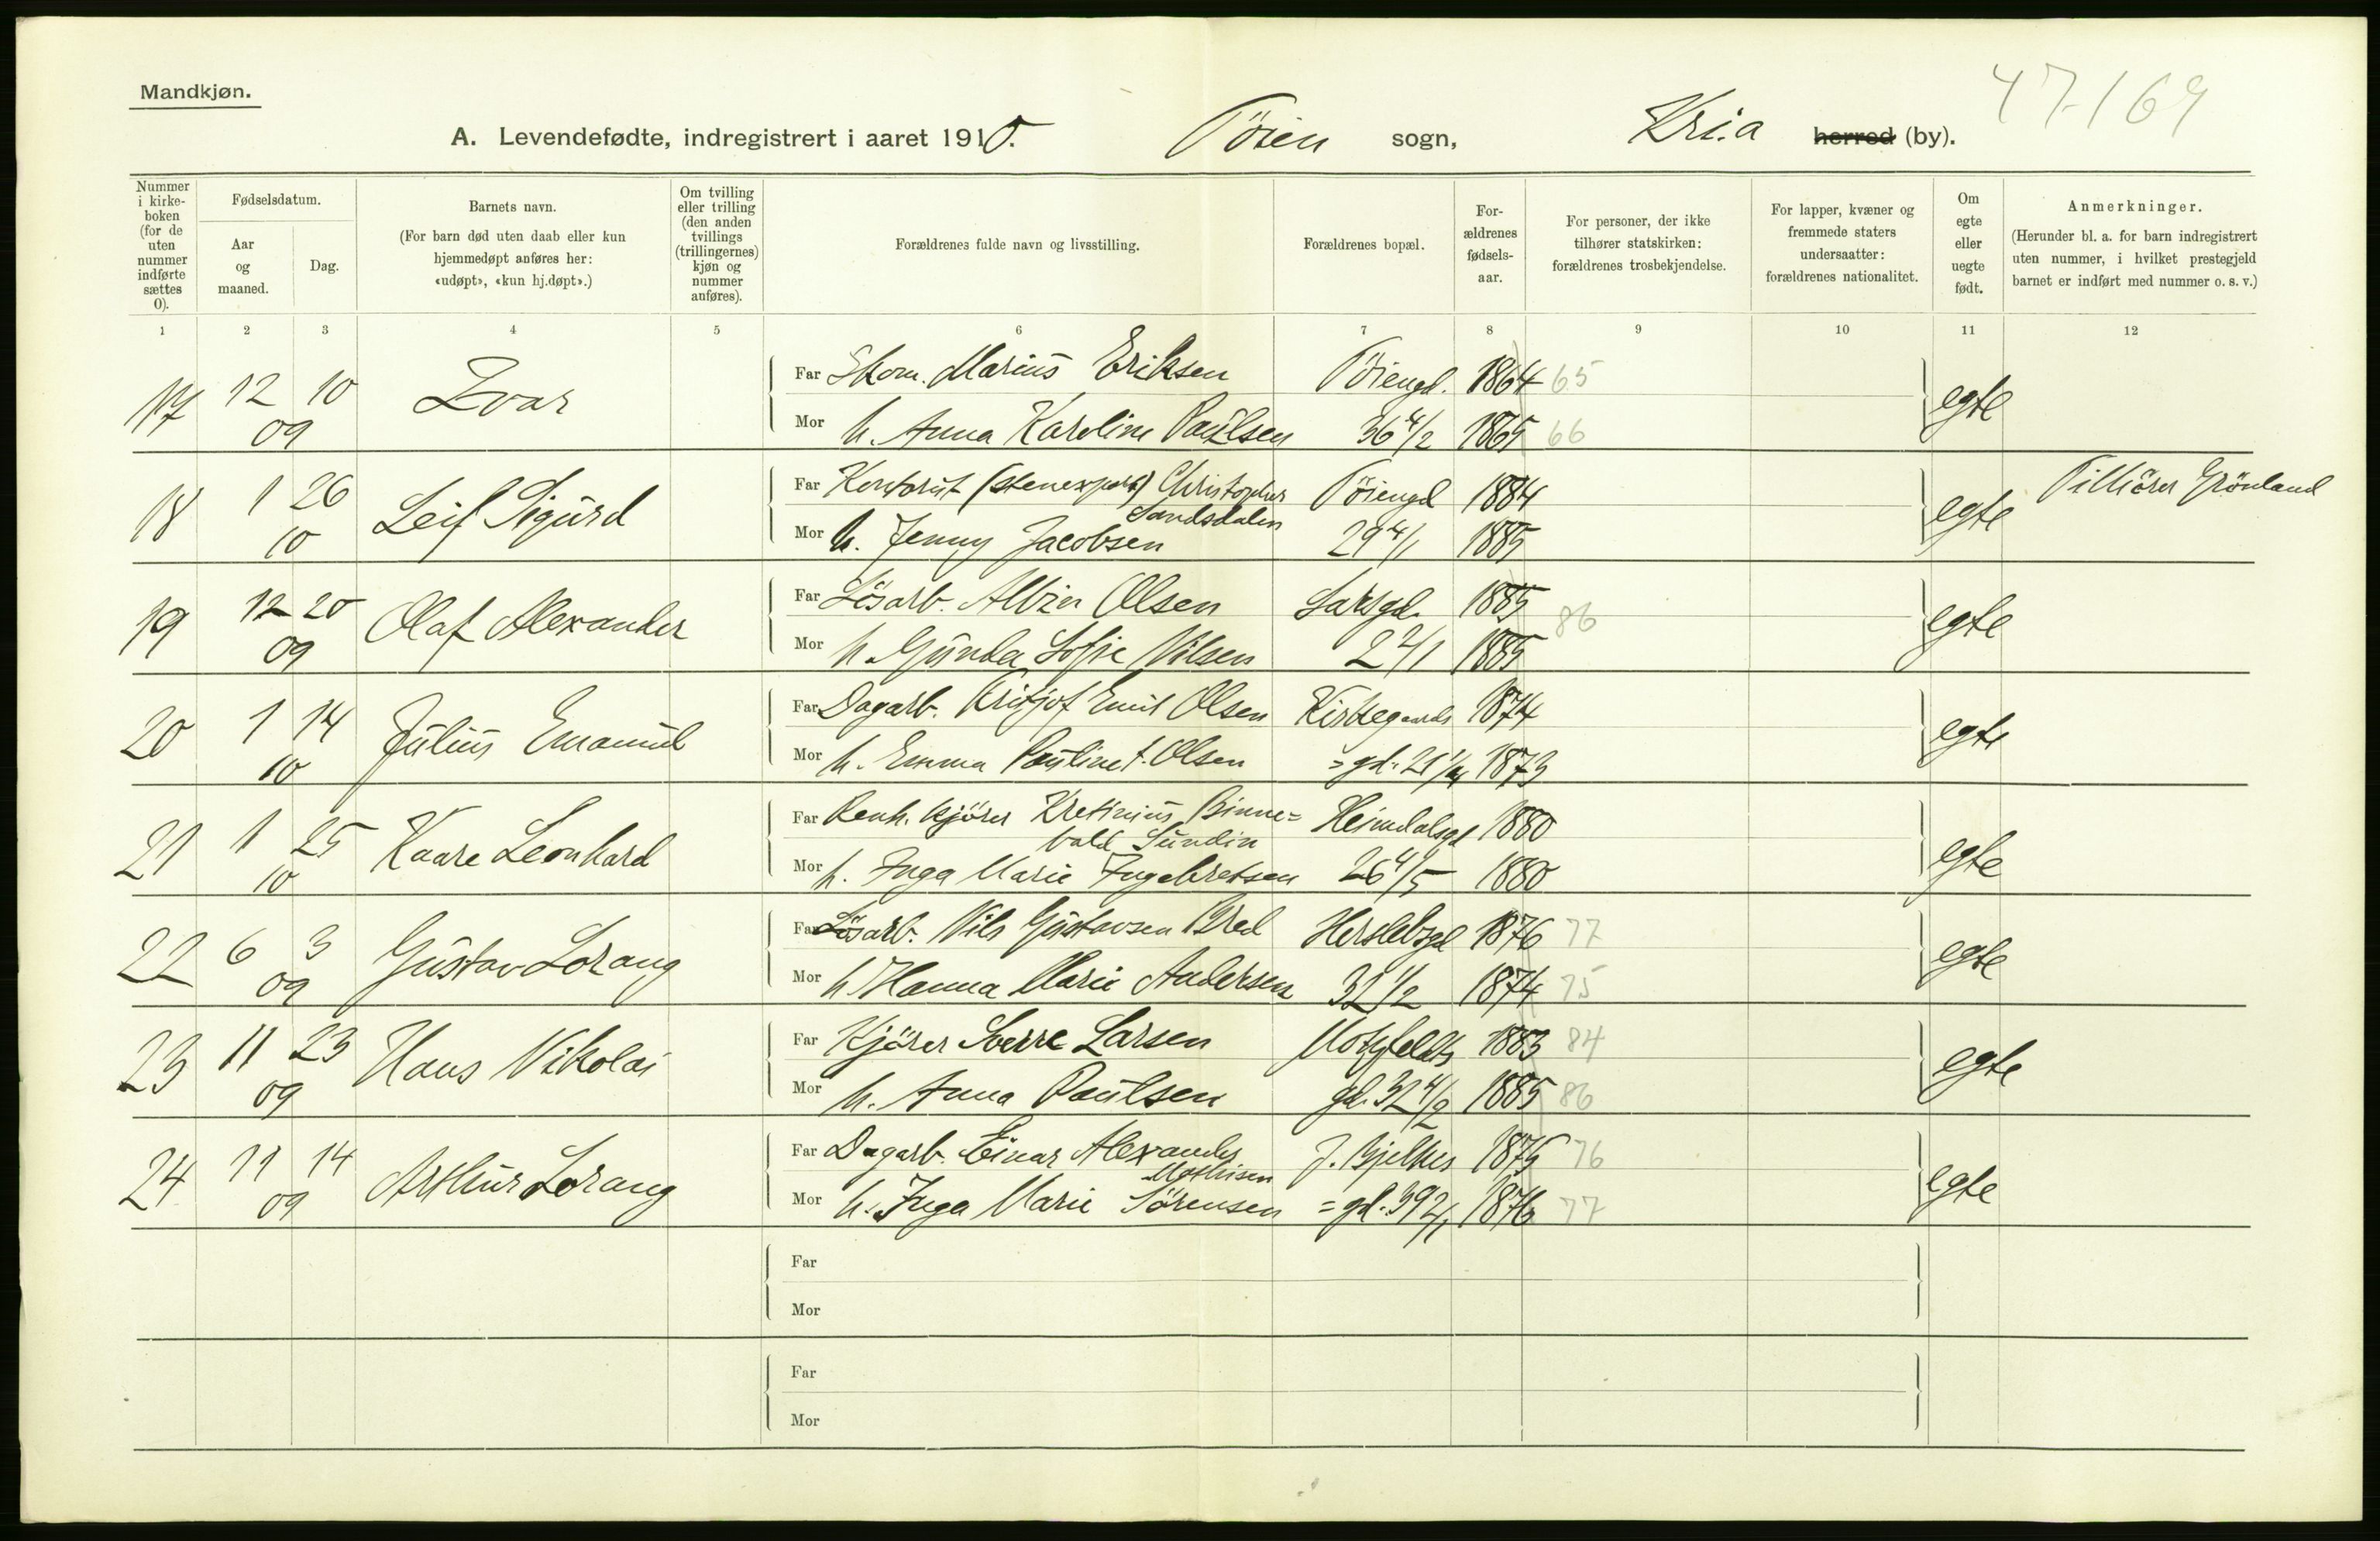 Mandkjøn.
47-169
A. Levendefødte, indregistrert i aaret 1910. Töien sogn, Kria herred (by).
Nummer i kirke-boken (for de uten nummer indførte sættes 0).
Fødselsdatum.
Aar og maaned.
Dag.
Barnets navn.
(For barn død uten daab eller kun hjemmedøpt anføres her: «udøpt», «kun hj.døpt».)
Om tvilling eller trilling (den anden tvillings (trillingernes) kjøn og nummer anføres).
Forældrenes fulde navn og livsstilling.
Forældrenes bopæl.
For-ældrenes fødsels-aar.
For personer, der ikke tilhører statskirken: forældrenes trosbekjendelse.
For lapper, kvæner og fremmede staters undersaatter: forældrenes nationalitet.
Om egte eller uegte født.
Anmerkninger.
(Herunder bl. a. for barn indregistrert uten nummer, i hvilket prestegjeld barnet er indført med nummer o. s. v.)
1 2 3 4 5 6 7 8 9 10 11 12
17 12 09 10 Ivar
Far Skom. Marius Eriksen Töiengd. 1864 65
Mor h. Anna Karoline Paulsen 36 4/2 1865 66
egte
18 1 10 26 Leif Sigurd
Far Kontorist (stenexport) Christopher Sandsdalen Töiengd 1884
Mor h. Jenny Jacobsen 29 4/1 1885
egte Tilhörer Grönland
19 12 09 20 Olaf Alexander
Far Lösarb. Albin Olsen Larsgd. 1885
Mor h. Gunda Sofie Nilsen 2 2/1 1885 86
egte
20 1 10 14 Julius Emanuel
Far Dagarb. Fritjof Emil Olsen Kirkegaards 1874
Mor h. Emma Pauline f. Olsen = gd. 21 1873
egte
21 1 10 25 Kaare Leonhard
Far Renh. kjörer Kretinius Binne=bald Sundin Heimdalsgd 1880
Mor h. Inga Marie Ingebretsen 26 4/5 1880
egte
22 6 09 3 Gustav Lorang
Far Lösarb. Nils Gustavsen Bred Herslebsgd 1876 77
Mor h. Hanna Marie Andersen 31 1/2 1874 75
egte
23 11 09 23 Hans Nikolai
Far Kjörer Sverre Larsen Motzfeldts 1883 84
Mor h. Anna Paulsen gd. 32 4/2 1885 86
egte
24 11 09 14 Arthur Lorang
Far Dagarb. Einar Alexander Mathisen J. Bjelkes 1875 76
Mor h. Inga Marie Sörensen = gd. 39 2/1 1876 77
egte
Far
Mor
Far
Mor